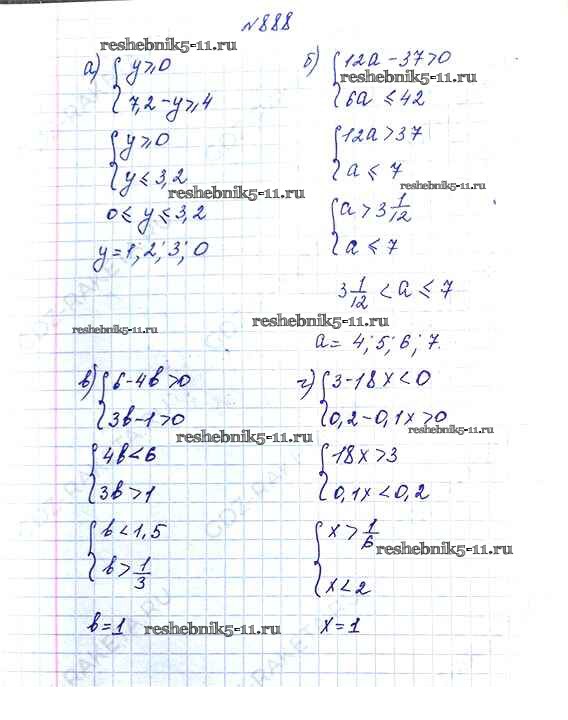 №888
reshebnik5-11.ru
а) { y ⩾ 0
{ 7,2 - y ⩾ 4
{ y ⩾ 0
{ y ⩽ 3,2
reshebnik5-11.ru
0 ⩽ y ⩽ 3,2
y = 1; 2; 3; 0
reshebnik5-11.ru
б) { 12a - 37 > 0
reshebnik5-11.ru
{ 6a ⩽ 42
{ 12a > 37
{ a ⩽ 7
reshebnik5-11.ru
{ a > 3 1/12
{ a ⩽ 7
3 1/12 < a ⩽ 7
reshebnik5-11.ru
a = 4; 5; 6; 7.
в) { 6 - 4b > 0
{ 3b - 1 > 0
reshebnik5-11.ru
{ 4b < 6
{ 3b > 1
{ b < 1,5
{ b > 1/3
b = 1
reshebnik5-11.ru
г) { 3 - 18x < 0
{ 0,2 - 0,1x > 0
reshebnik5-11.ru
{ 18x > 3
{ 0,1x < 0,2
{ x > 1/6
reshebnik5-11.ru
{ x < 2
x = 1